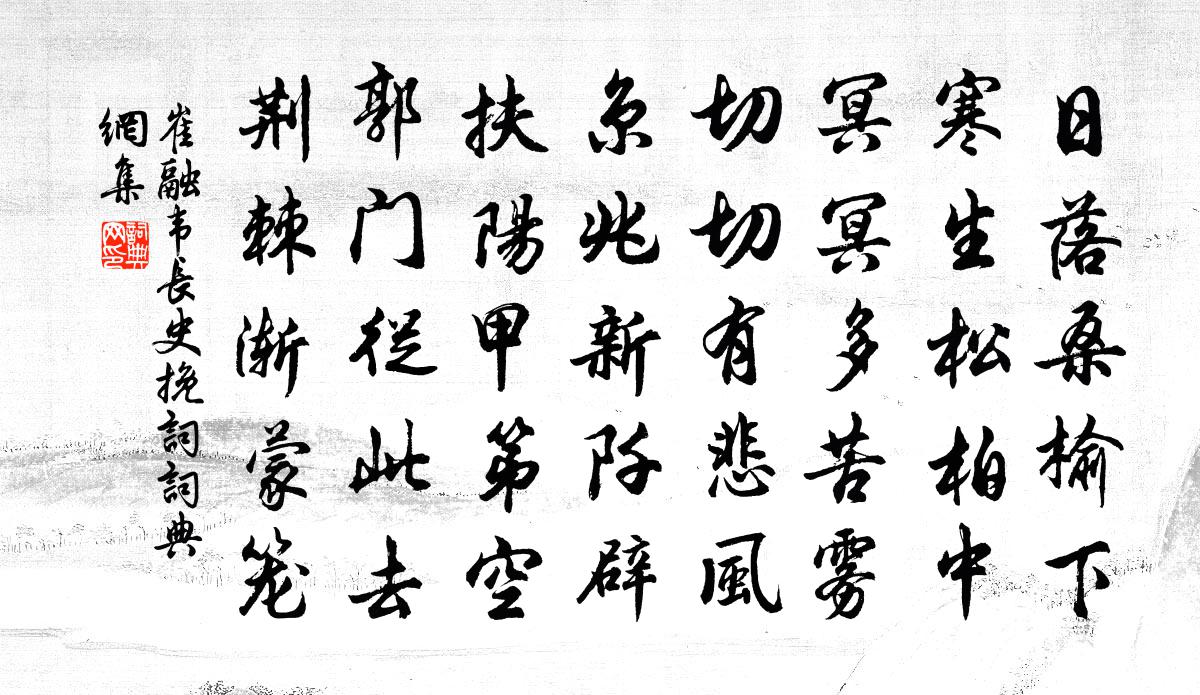 日落桑榆下
寒生松柏中
冥冥多苦雾
切切有悲風
京兆新阡辟
扶陽甲第空
郭门從此去
荆棘渐蒙笼
崔融韦長史挽詞詞典
網集
詞典
网印